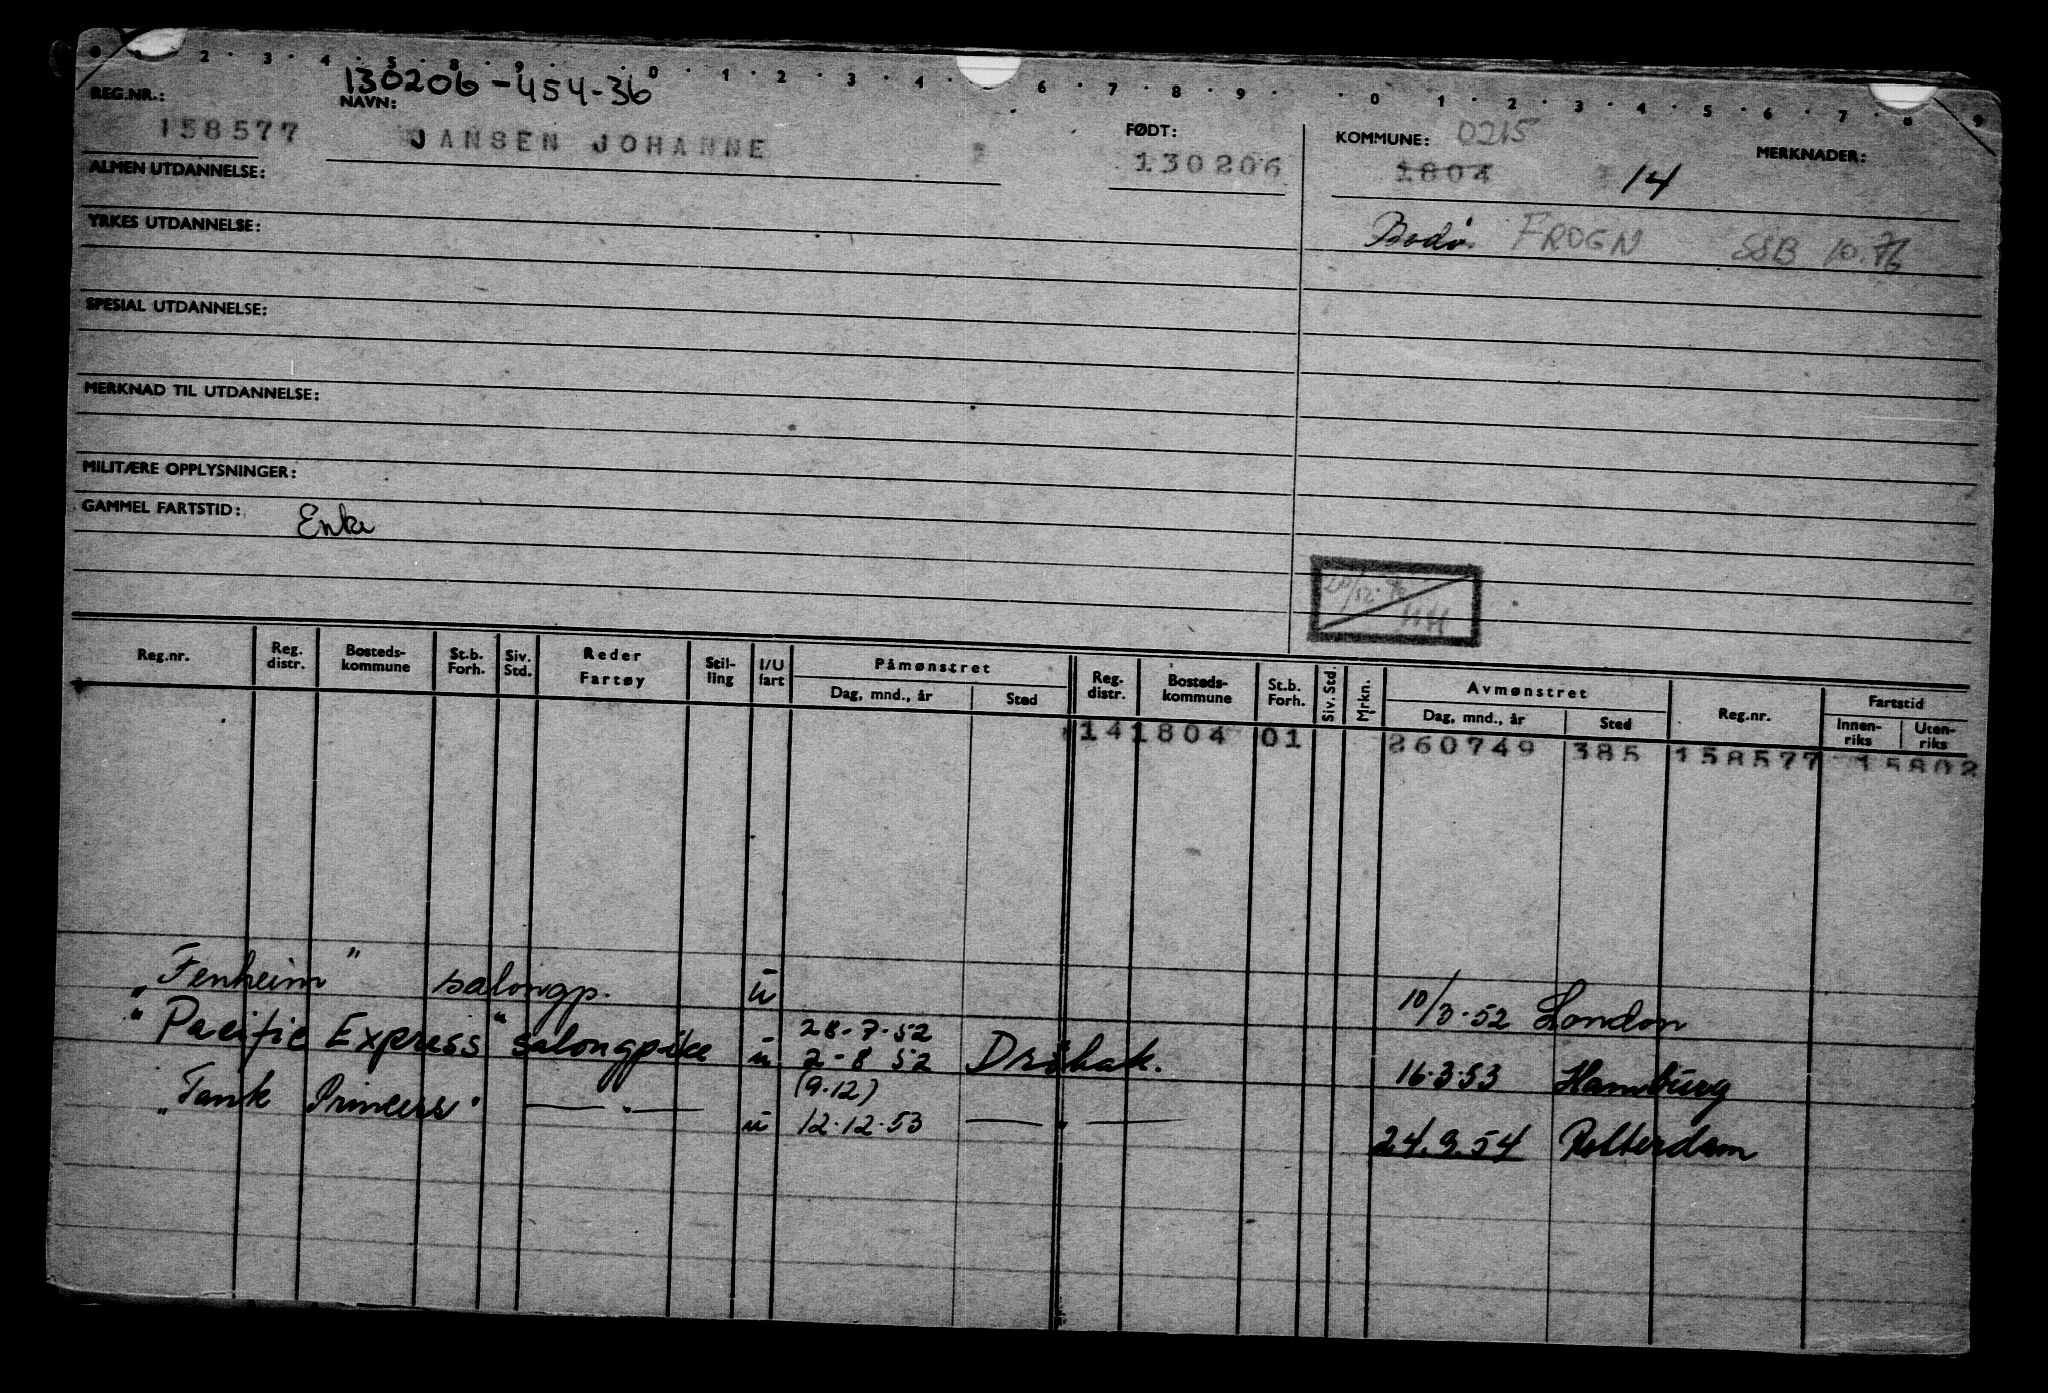 0 2 · 3 · 4 · 5 · 8 · 9 · 0 · 1 · 2 · 3 · 4 · 6 · 7 · 8 · 9 · · 0 · 1 · 2 · 3 · 4 · 5 · 6 · 7 · 8 9
130206-454-36
REG.NR.: NAVN: FØDT: KOMMUNE: 0215 MERKNADER:
158577 JANSEN JOHANNE 130206 1804 14
ALMEN UTDANNELSE:
Bodø. FROGN SSB 10.76
YRKES UTDANNELSE:
SPESIAL UTDANNELSE:
MERKNAD TIL UTDANNELSE:
MILITÆRE OPPLYSNINGER:
GAMMEL FARTSTID: Enke
Reg.nr. Reg. distr. Bosteds-kommune St.b. Forh. Siv. Std. Reder Fartøy Stil-ling I/U fart Påmønstret Dag, mnd., år Sted Reg. distr. Bosteds-kommune St.b. Forh. Siv. Std. Mrkn. Avmønstret Dag, mnd., år Sted Reg.nr. Fartstid Innen-riks Uten-riks
14 1804 01 260749 385 158577 15802
„Fenheim" salongp. u 10/3-52 London
28-7-52
"Pacific Express" salongpike u 2-8 52 Drøbak. 16.3.53 Hamburg
(9.12)
„Tank Princess" —"— u 12.12.53 —"— 24.9.54 Rotterdam